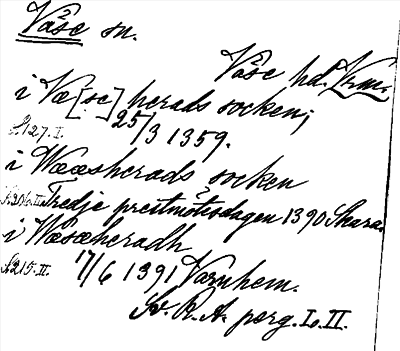 Våse sn.
Väse hd. Vrml.
i Væ[se] herads socken;
S127. I. 25/3 1359.
i Wææsherads socken
S206. II. Tredje prestmötisdagen 1390 Skara.
i Wæsæheradh
S215. II. 17/6 1391 Varnhem.
Sv. R. A. perg. I. II.